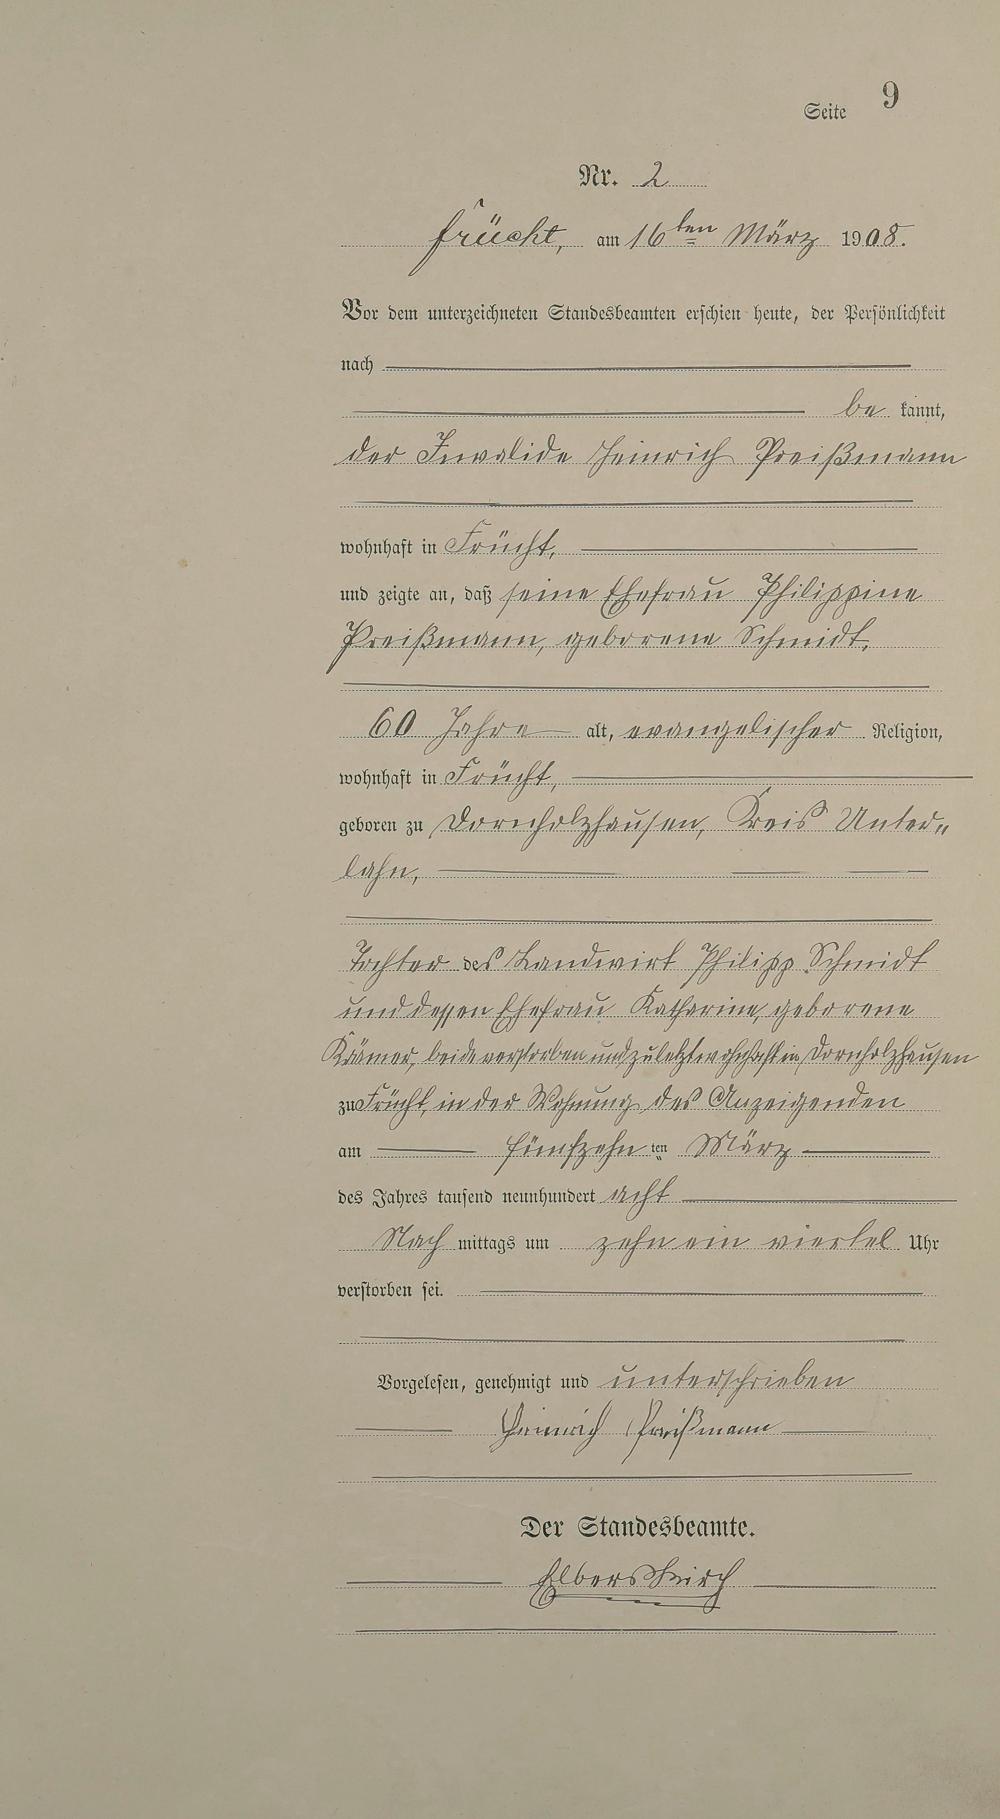 Seite 9
Nr. 2
Frücht, am 16ten März 1908.
Vor dem unterzeichneten Standesbeamten erschien heute, der Persönlichkeit
nach
be kannt,
der Invalide Heinrich Preißmann
wohnhaft in Frücht,
und zeigte an, daß seine Ehefrau Philippine
Preißmann, geborene Schmidt,
60 Jahre alt, evangelischer Religion,
wohnhaft in Frücht,
geboren zu Dornholzhausen, Kreis Unter„
lahn,
Tochter des Landwirt Philipp Schmidt
und dessen Ehefrau Katharine, geborene
Krämer, beide verstorben und zuletzt wohnhaft in Dornholzhausen
zu Frücht, in der Wohnung des Anzeigenden
am fünfzehn ten März
des Jahres tausend neunhundert acht
Nach mittags um zehn ein viertel Uhr
verstorben sei.
Vorgelesen, genehmigt und unterschrieben
Heinrich Preißmann
Der Standesbeamte.
Elberskirch